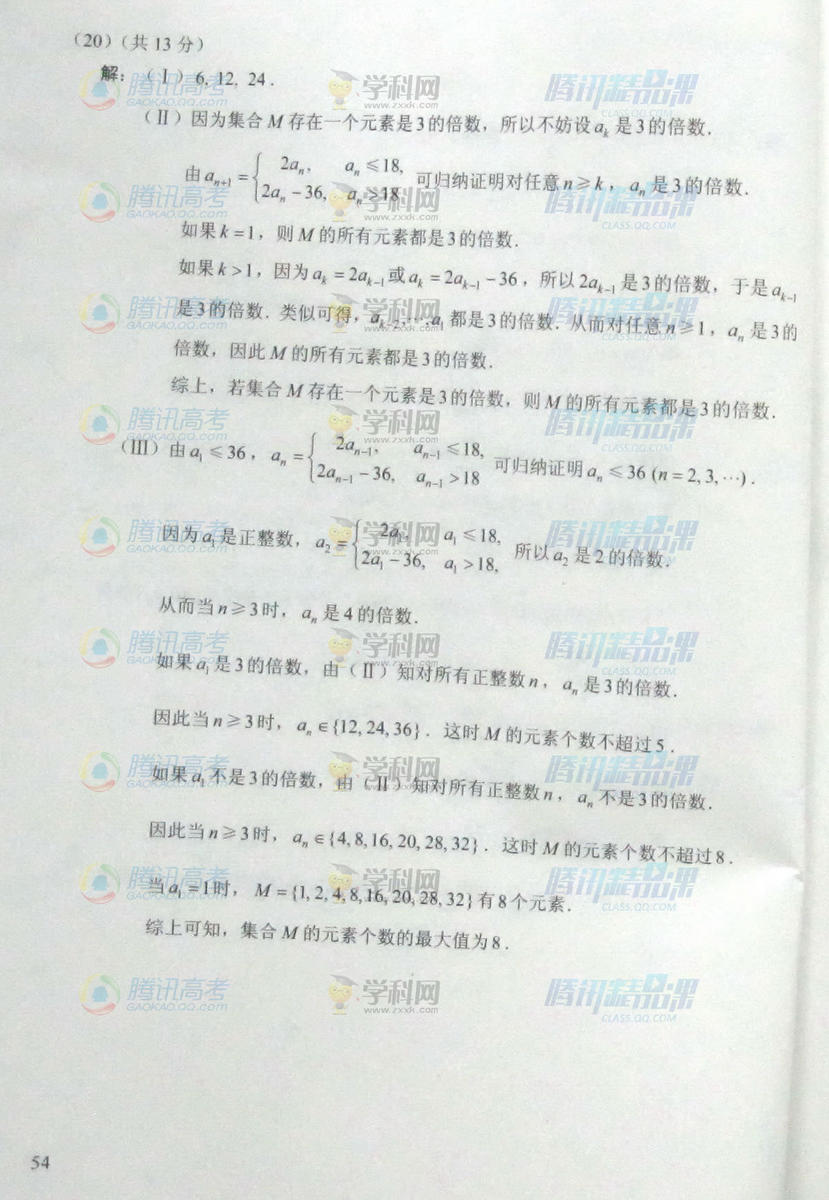 （20）（共13分）
解：（Ⅰ）6, 12, 24．
（Ⅱ）因为集合 M 存在一个元素是3的倍数，所以不妨设 aₖ 是3的倍数．
由 aₙ₊₁ = { 2aₙ, aₙ ≤ 18,
2aₙ − 36, aₙ > 18 可归纳证明对任意 n ≥ k， aₙ 是3的倍数．
如果 k = 1，则 M 的所有元素都是3的倍数．
如果 k > 1，因为 aₖ = 2aₖ₋₁ 或 aₖ = 2aₖ₋₁ − 36，所以 2aₖ₋₁ 是3的倍数，于是 aₖ₋₁
是3的倍数．类似可得，aₖ₋₂,…,a₁ 都是3的倍数．从而对任意 n ≥ 1，aₙ 是3的
倍数，因此 M 的所有元素都是3的倍数．
综上，若集合 M 存在一个元素是3的倍数，则 M 的所有元素都是3的倍数．
（Ⅲ）由 a₁ ≤ 36，aₙ = { 2aₙ₋₁, aₙ₋₁ ≤ 18,
2aₙ₋₁ − 36, aₙ₋₁ > 18 可归纳证明 aₙ ≤ 36 (n = 2, 3, ⋯)．
因为 a₁ 是正整数，a₂ = { 2a₁, a₁ ≤ 18,
2a₁ − 36, a₁ > 18, 所以 a₂ 是2的倍数．
从而当 n ≥ 3 时，aₙ 是4的倍数．
如果 a₁ 是3的倍数，由（Ⅱ）知对所有正整数 n，aₙ 是3的倍数．
因此当 n ≥ 3 时，aₙ ∈ {12, 24, 36}．这时 M 的元素个数不超过5．
如果 a₁ 不是3的倍数，由（Ⅱ）知对所有正整数 n，aₙ 不是3的倍数．
因此当 n ≥ 3 时，aₙ ∈ {4, 8, 16, 20, 28, 32}．这时 M 的元素个数不超过8．
当 a₁ = 1 时， M = {1, 2, 4, 8, 16, 20, 28, 32} 有8个元素．
综上可知，集合 M 的元素个数的最大值为8．
腾讯高考 GAOKAO.QQ.COM
学科网 www.zxxk.com
腾讯精品课 CLASS.QQ.COM
54